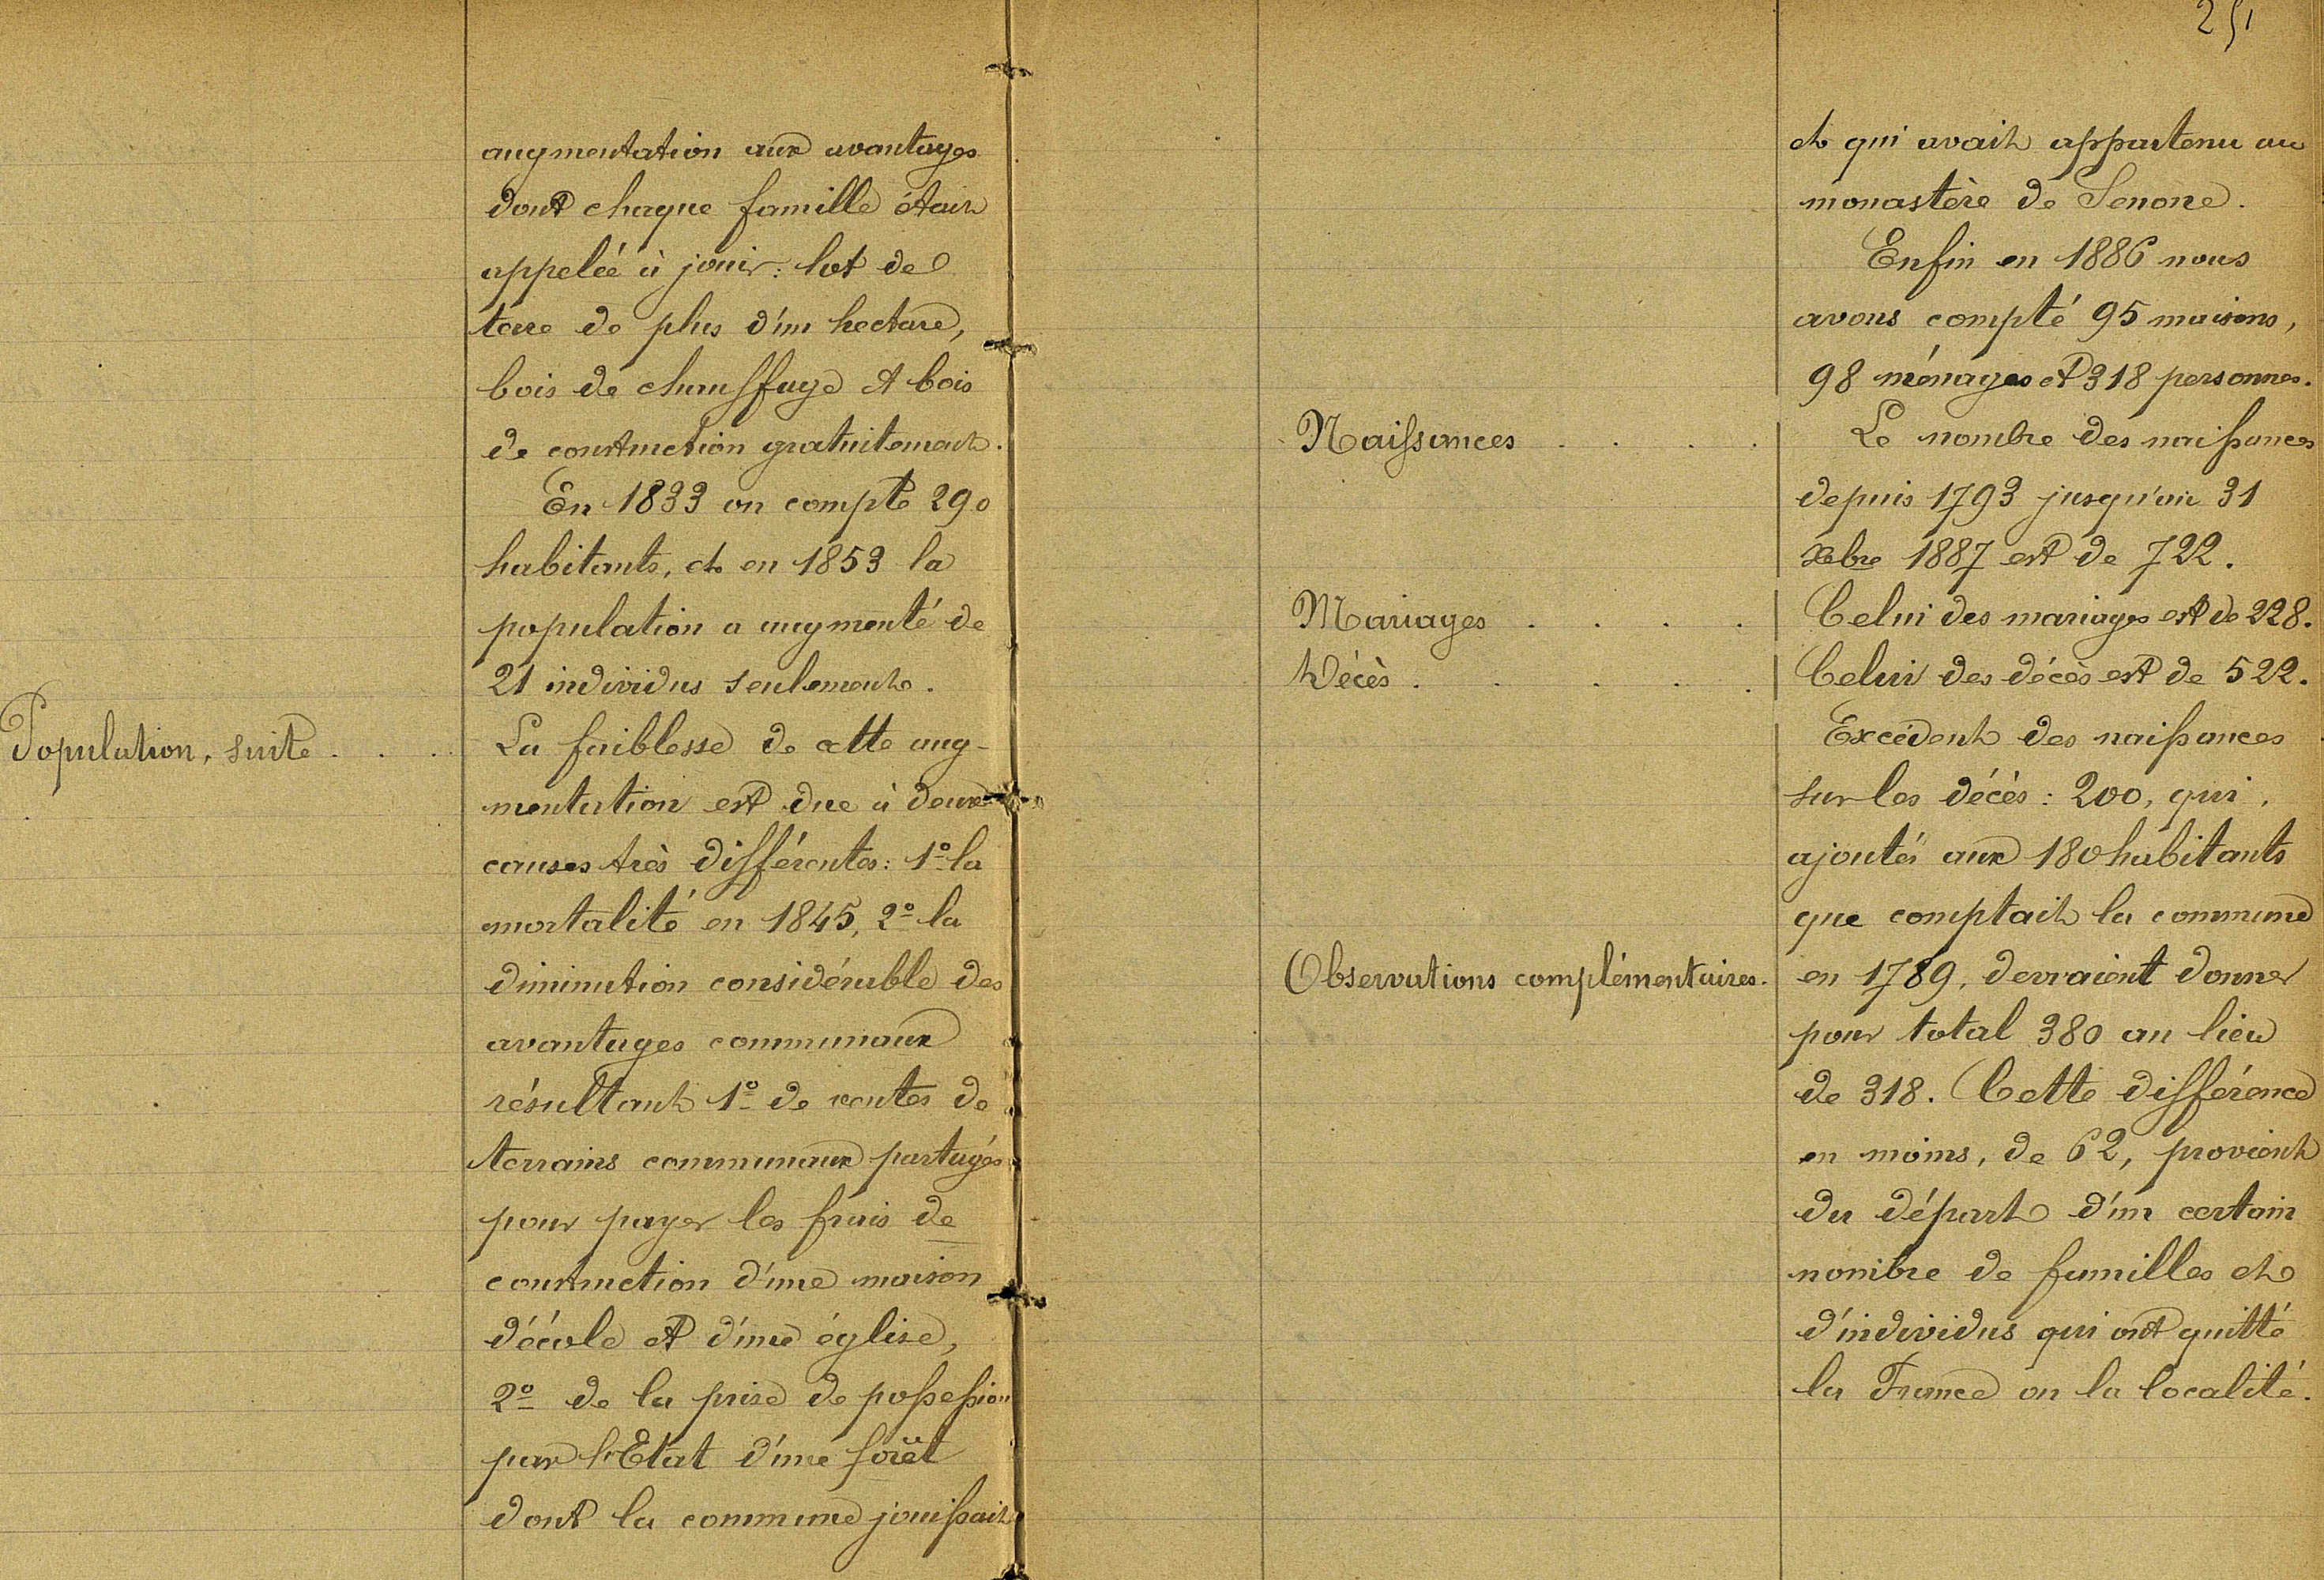 augmentation aux avantages
dont chaque famille était
appelée à jouir : lot de
terre de plus d'un hectare,
bois de chauffage et bois
de construction gratuitement.
En 1833 on compte 290
habitants, et en 1853 la
population a augmenté de
21 individus seulement.
Population, suite . . .
La faiblesse de cette aug-
mentation est due à deux
causes très différentes : 1º la
mortalité en 1845, 2º la
diminution considérable des
avantages communaux
résultant 1º de ventes de
terrains communaux partagés
pour payer les frais de
construction d'une maison
d'école et d'une église,
2º de la prise de possession
par l'Etat d'une forêt
dont la commune jouissait
251
et qui avait appartenu au
monastère de Senone.
Enfin en 1886 nous
avons compté 95 maisons,
98 ménages et 318 personnes.
Naissances . . . .
Le nombre des naissances
depuis 1793 jusqu'au 31
xbre 1887 est de 722.
Mariages . . . .
Celui des mariages est de 228.
Décès . . . .
Celui des décès est de 522.
Excédent des naissances
sur les décès : 200, qui,
ajoutés aux 180 habitants
que comptait la commune
Observations complémentaires.
en 1789, devraient donner
pour total 380 au lieu
de 318. Cette différence
en moins, de 62, provient
du départ d'un certain
nombre de familles et
d'individus qui ont quitté
la France ou la localité.